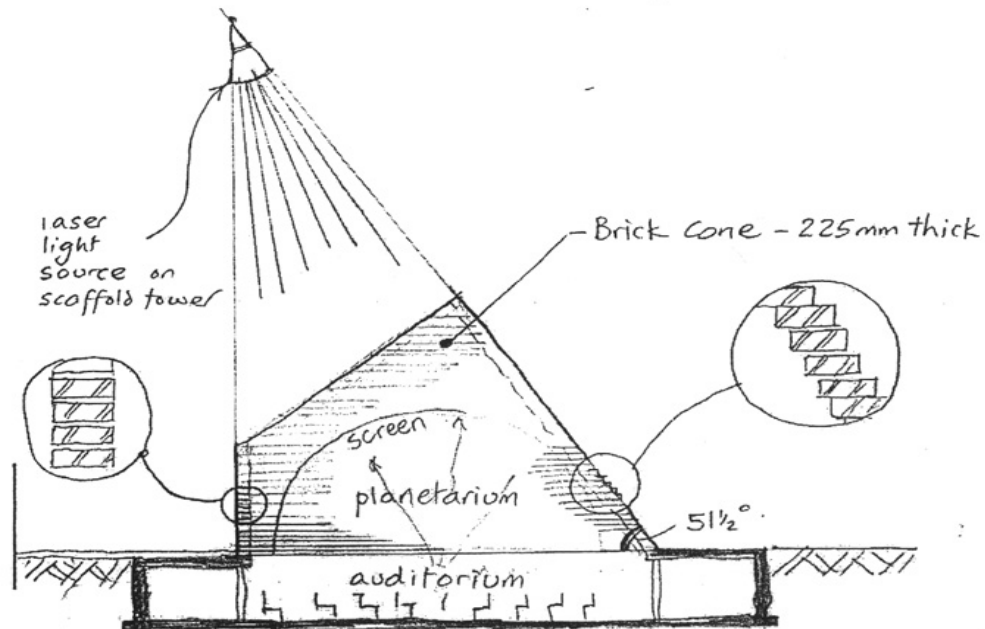 laser
light
source on
scaffold tower
Brick cone - 225mm thick
screen
planetarium
51½°
auditorium